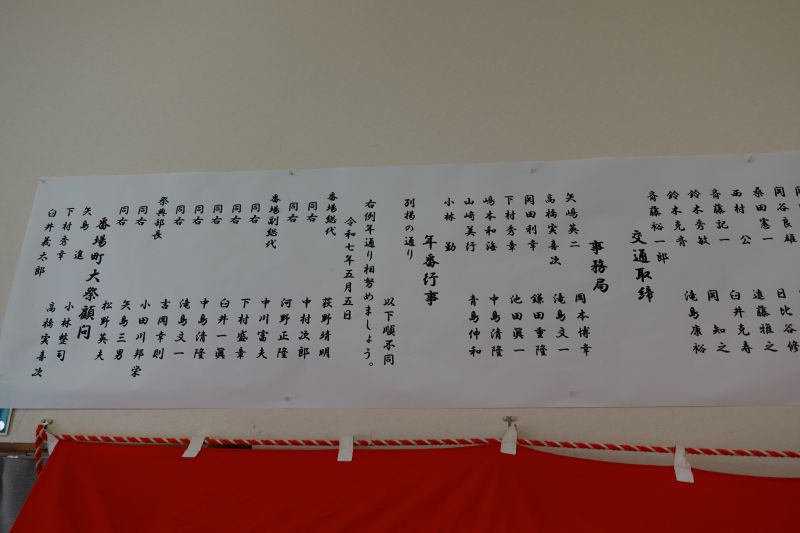 関谷良雄　日比谷修
桑田憲一　遠藤雅之
西村　公　臼井克寿
齊藤記一　関　知之
鈴木秀敏　滝島康裕
鈴木克斉
齊藤裕一郎
交通取締
事務局
矢嶋英二　岡本博幸
高橋実喜次　滝島文一
関田利幸　鎌田重隆
下村秀幸　池田眞一
嶋本和海　中島清隆
山﨑美行　青島伸和
小林　勤
年番行事
別掲の通り
以下順不同
右例年通り相努めましょう。
令和七年五月五日
番場総代　荻野靖明
同右　中村次郎
同右　河野正隆
番場副総代　中川富夫
同右　下村盛幸
同右　臼井一眞
同右　中島清隆
同右　滝島文一
祭典部長　吉岡幸則
同右　小田川邦栄
同右　矢島三男
番場町大祭顧問
矢島　進　松野英夫
下村秀幸　小林整司
臼井義太郎　高橋実喜次